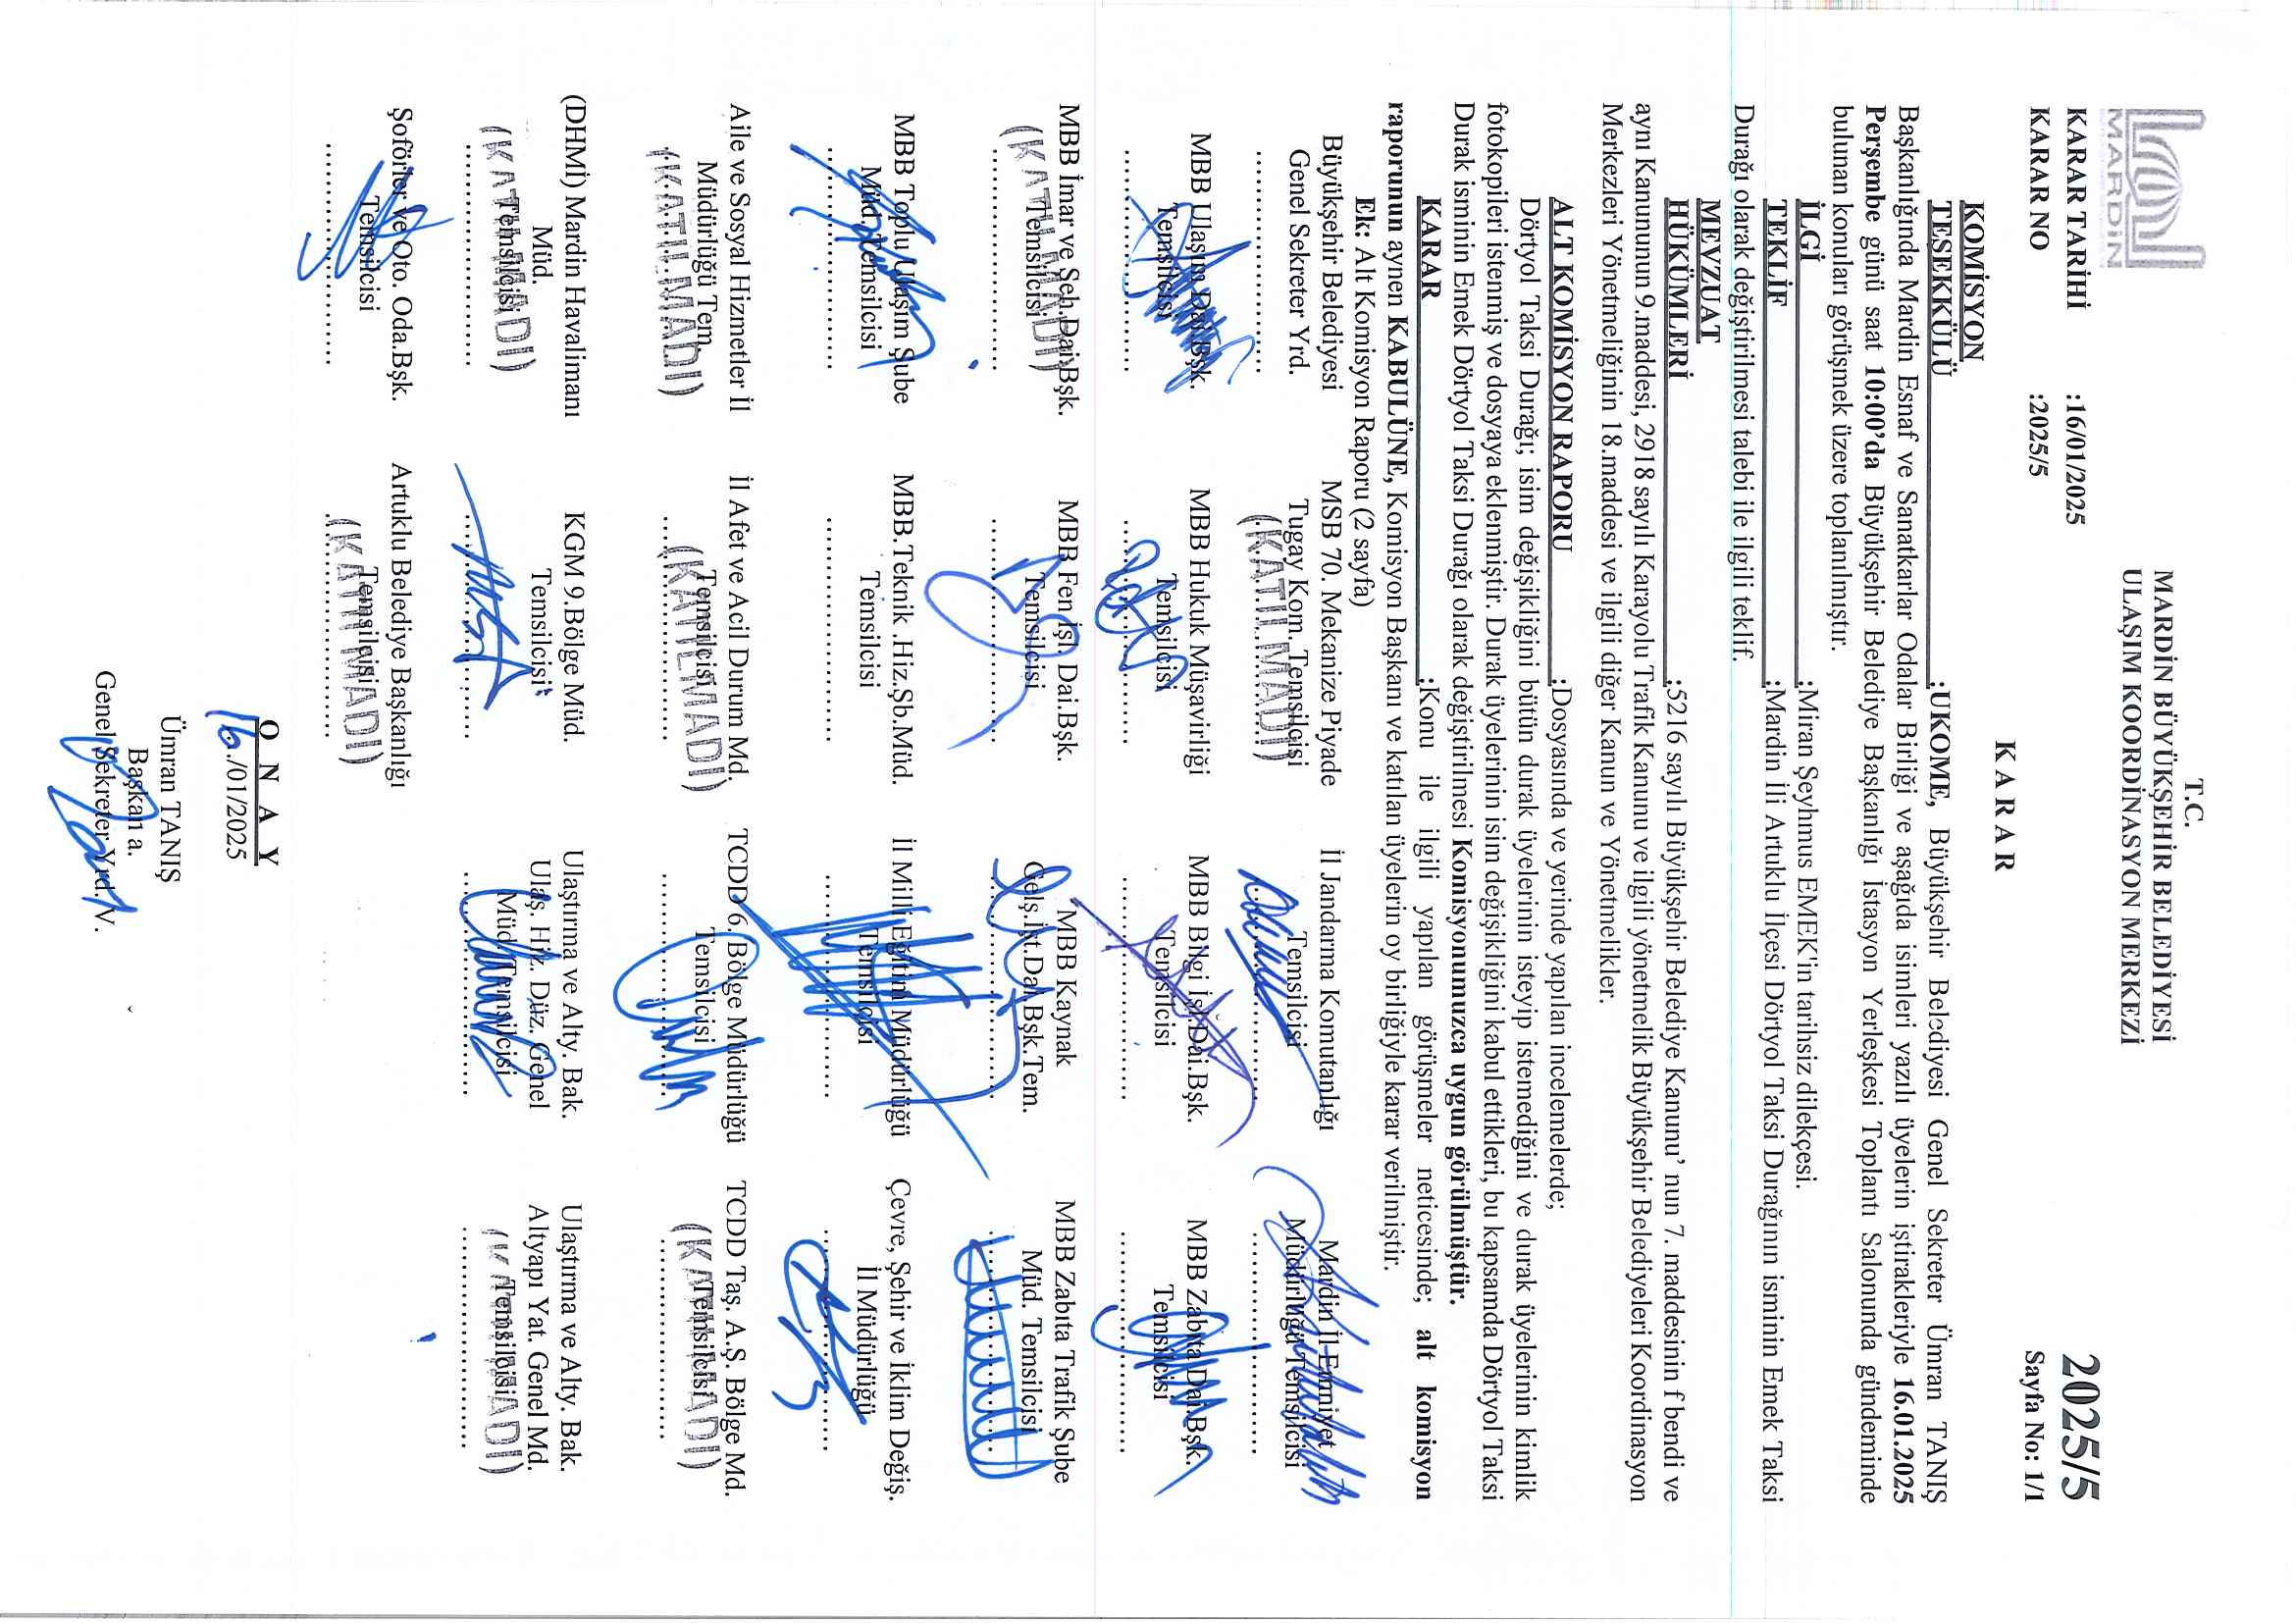 T.C.
MARDİN BÜYÜKŞEHİR BELEDİYESİ
ULAŞIM KOORDİNASYON MERKEZİ
MARDİN
2025/5
KARAR TARİHİ :16/01/2025
KARAR NO :2025/5
Sayfa No: 1/1
K A R A R
KOMİSYON
TEŞEKKÜLÜ :UKOME, Büyükşehir Belediyesi Genel Sekreter Ümran TANIŞ
Başkanlığında Mardin Esnaf ve Sanatkarlar Odalar Birliği ve aşağıda isimleri yazılı üyelerin iştirakleriyle 16.01.2025
Perşembe günü saat 10:00’da Büyükşehir Belediye Başkanlığı İstasyon Yerleşkesi Toplantı Salonunda gündeminde
bulunan konuları görüşmek üzere toplanılmıştır.
İLGİ :Miran Şeyhmus EMEK'in tarihsiz dilekçesi.
TEKLİF :Mardin İli Artuklu İlçesi Dörtyol Taksi Durağının isminin Emek Taksi
Durağı olarak değiştirilmesi talebi ile ilgili teklif.
MEVZUAT
HÜKÜMLERİ :5216 sayılı Büyükşehir Belediye Kanunu’ nun 7. maddesinin f bendi ve
aynı Kanununun 9.maddesi, 2918 sayılı Karayolu Trafik Kanunu ve ilgili yönetmelik Büyükşehir Belediyeleri Koordinasyon
Merkezleri Yönetmeliğinin 18.maddesi ve ilgili diğer Kanun ve Yönetmelikler.
ALT KOMİSYON RAPORU :Dosyasında ve yerinde yapılan incelemelerde;
Dörtyol Taksi Durağı; isim değişikliğini bütün durak üyelerinin isteyip istemediğini ve durak üyelerinin kimlik
fotokopileri istenmiş ve dosyaya eklenmiştir. Durak üyelerinin isim değişikliğini kabul ettikleri, bu kapsamda Dörtyol Taksi
Durak isminin Emek Dörtyol Taksi Durağı olarak değiştirilmesi Komisyonumuzca uygun görülmüştür.
KARAR :Konu ile ilgili yapılan görüşmeler neticesinde; alt komisyon
raporunun aynen KABULÜNE, Komisyon Başkanı ve katılan üyelerin oy birliğiyle karar verilmiştir.
Ek: Alt Komisyon Raporu (2 sayfa)
Büyükşehir Belediyesi
Genel Sekreter Yrd.
MSB 70. Mekanize Piyade
Tugay Kom. Temsilcisi
(KATILMADI)
İl Jandarma Komutanlığı
Temsilcisi
Mardin İl Emniyet
Müdürlüğü Temsilcisi
MBB Ulaşım Dai.Bşk.
Temsilcisi
MBB Hukuk Müşavirliği
Temsilcisi
MBB Bilgi İşl.Dai.Bşk.
Temsilcisi
MBB Zabıta Dai.Bşk.
Temsilcisi
MBB İmar ve Şeh.Dai.Bşk.
Temsilcisi
(KATILMADI)
MBB Fen İşl. Dai.Bşk.
Temsilcisi
MBB Kaynak
Gelş.İşt.Dai.Bşk.Tem.
MBB Zabıta Trafik Şube
Müd. Temsilcisi
MBB Toplu Ulaşım Şube
Müd.Temsilcisi
MBB.Teknik .Hiz.Şb.Müd.
Temsilcisi
İl Milli Eğitim Müdürlüğü
Temsilcisi
Çevre, Şehir ve İklim Değiş.
İl Müdürlüğü
Aile ve Sosyal Hizmetler İl
Müdürlüğü Tem.
(KATILMADI)
İl Afet ve Acil Durum Md.
Temsilcisi
(KATILMADI)
TCDD 6. Bölge Müdürlüğü
Temsilcisi
TCDD Taş. A.Ş. Bölge Md.
Temsilcisi
(KATILMADI)
(DHMİ) Mardin Havalimanı
Müd.
Temsilcisi
(KATILMADI)
KGM 9.Bölge Müd.
Temsilcisi
Ulaştırma ve Alty. Bak.
Ulaş. Hiz. Düz. Genel
Müd.Temsilcisi
Ulaştırma ve Alty. Bak.
Altyapı Yat. Genel Md.
Temsilcisi
(KATILMADI)
Şoförler ve Oto. Oda.Bşk.
Temsilcisi
Artuklu Belediye Başkanlığı
Temsilcisi
(KATILMADI)
O N A Y
16./01/2025
Ümran TANIŞ
Başkan a.
Genel Sekreter Yrd. V.